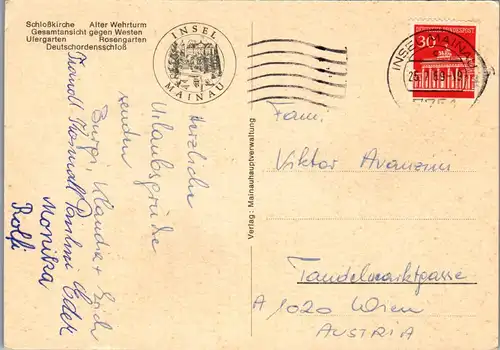 Schloßkirche Alter Wehrturm
Gesamtansicht gegen Westen
Ufergarten Rosengarten
Deutschordensschloß
INSEL
MAINAU
Herzliche
Urlaubsgrüße
senden
Burgi, Klaudia + Erich
Monika
Rolfi
Verlag: Mainauhauptverwaltung
30
DEUTSCHE BUNDESPOST
INSEL MAINAU
Fam.
Viktor Avanzini
Tandelmarktgasse
A 1020 Wien
AUSTRIA